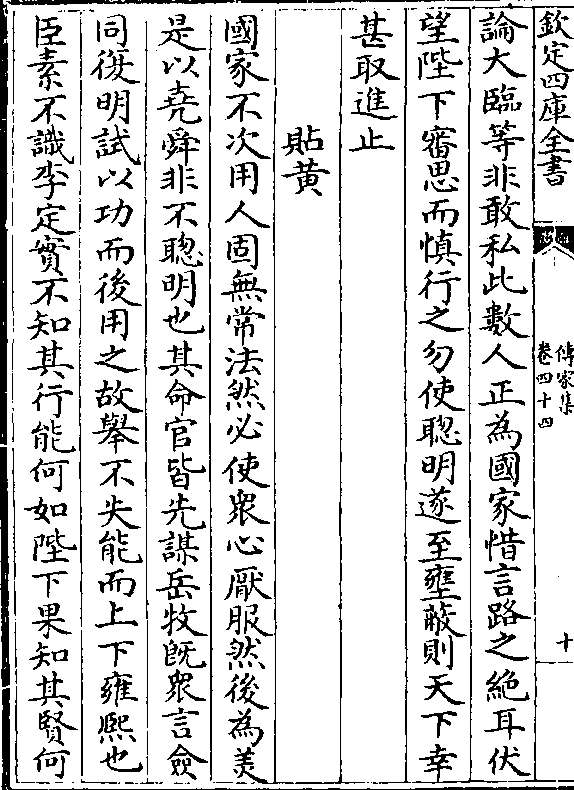 欽定四庫全書
傳家集
卷四十四
十
論大臨等非敢私此數人正為國家惜言路之絶耳伏
望陛下審思而慎行之勿使聰明遂至壅蔽則天下幸
甚取進止
貼黄
國家不次用人固無常法然必使衆心厭服然後為美
是以堯舜非不聰明也其命官皆先謀岳牧既衆言僉
同復明試以功而後用之故舉不失能而上下雍熙也
臣素不識李定實不知其行能何如陛下果知其賢何